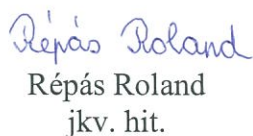 Répás Roland
Répás Roland
jkv. hit.